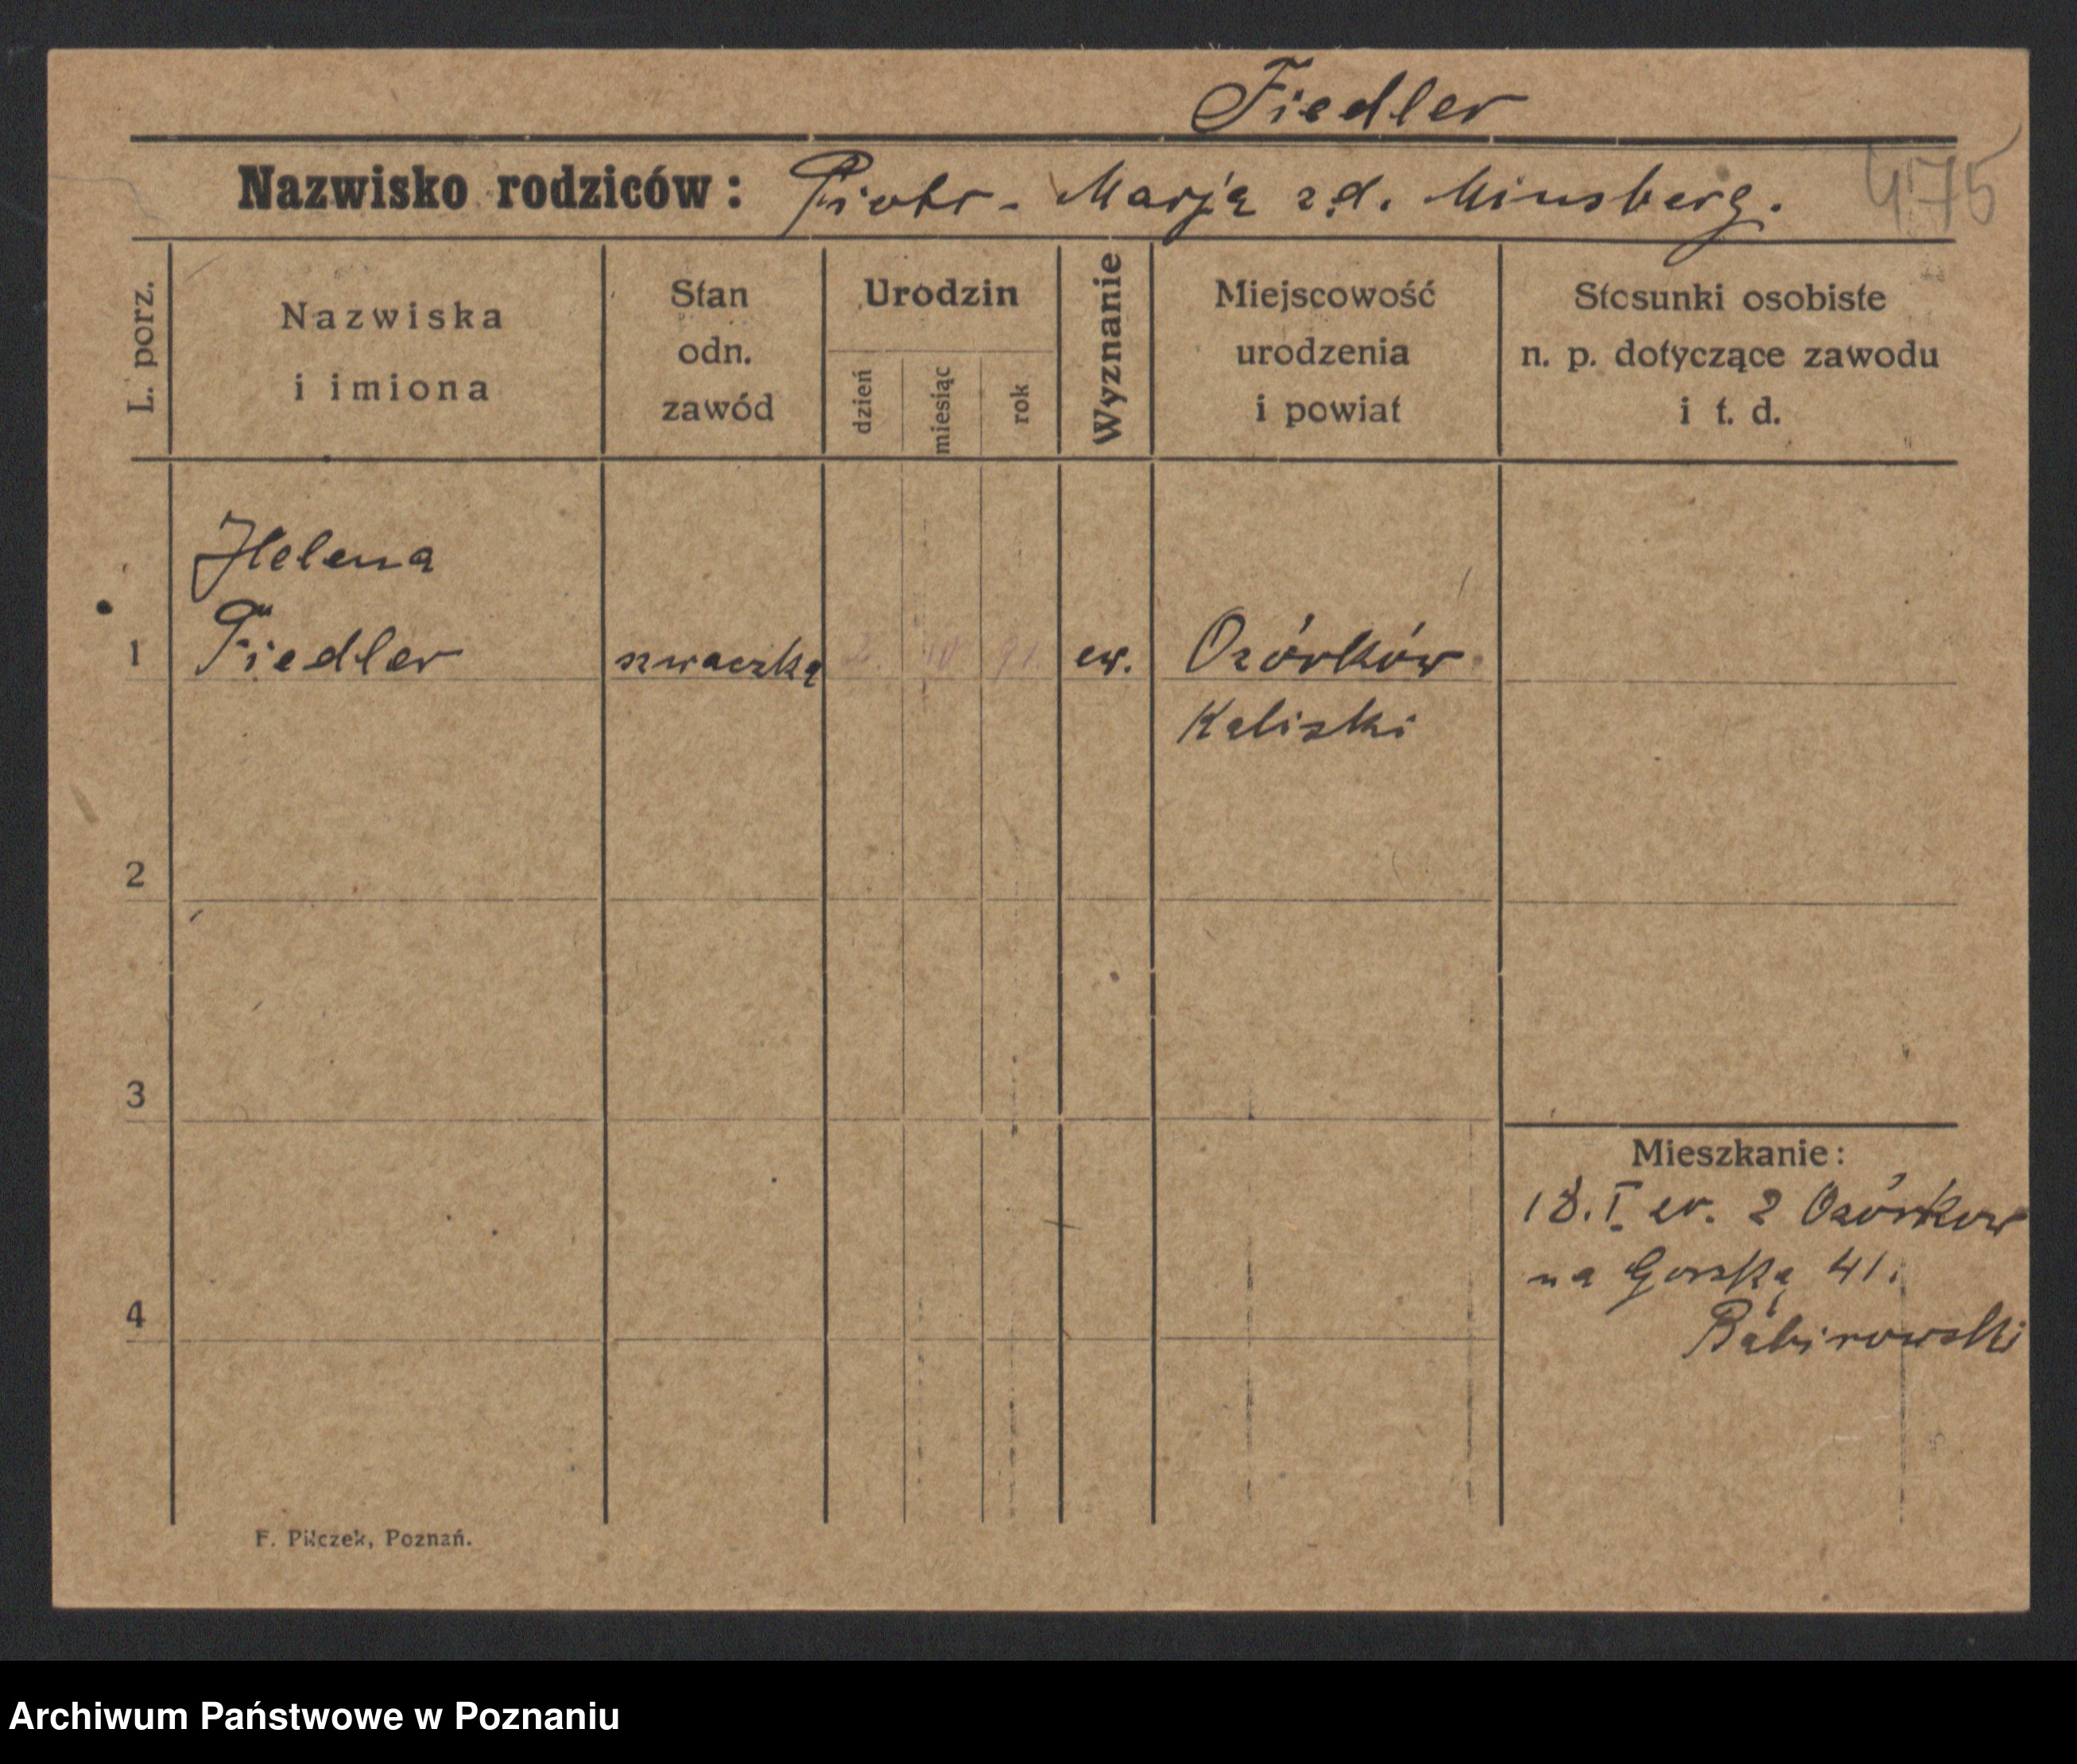 Fiedler
Nazwisko rodziców: Piotr - Marja z d. Minsberg.
475
L. porz.
Nazwiska
i imiona
Stan
odn.
zawód
Urodzin
dzień
miesiąc
rok
Wyznanie
Miejscowość
urodzenia
i powiat
Stosunki osobiste
n. p. dotyczące zawodu
i t. d.
Helena
1 Fiedler szwaczka 2. 10 91 ew. Ozórków
Kaliski
2
3
Mieszkanie:
18.I. 2 Ozórkow
na Gorską 41.
4
Babirowski
F. Pilczek, Poznań.
Archiwum Państwowe w Poznaniu